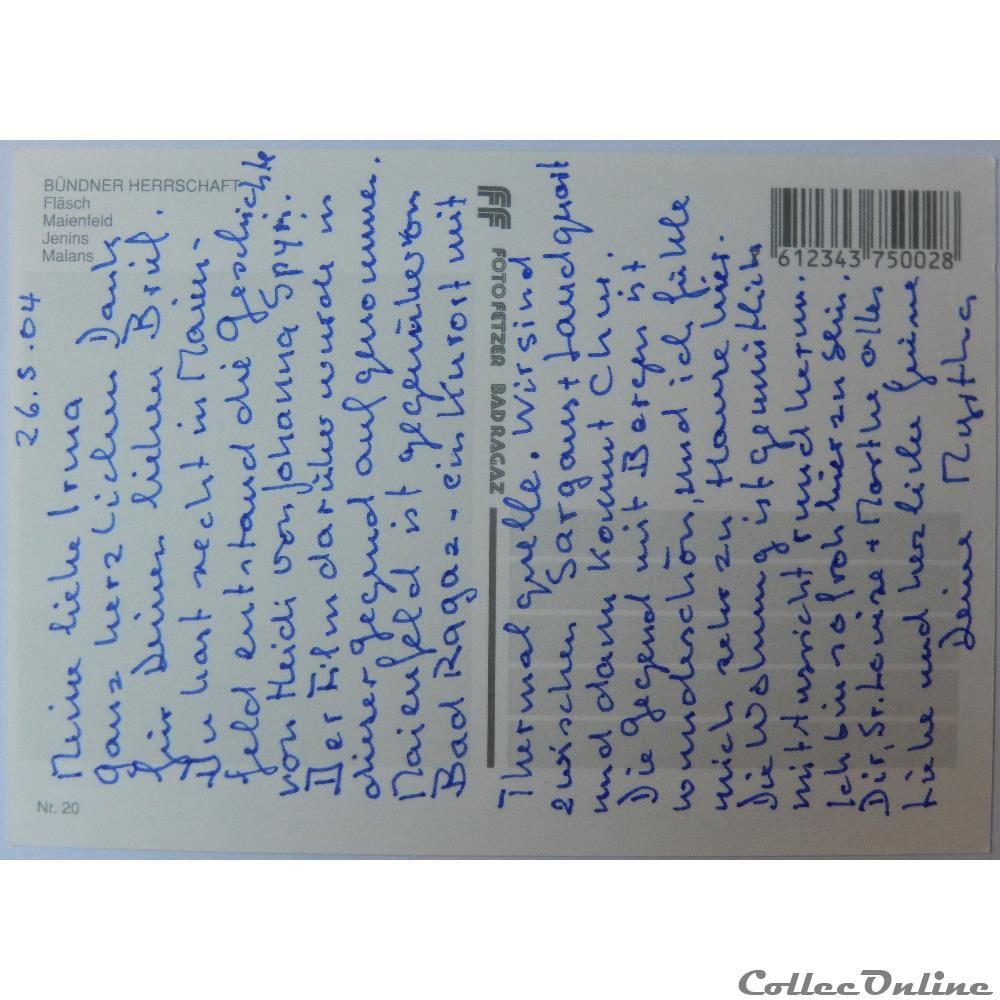 BÜNDNER HERRSCHAFT
Fläsch
Maienfeld
Jenins
Malans
Nr. 20
FF FOTO FETZER BAD RAGAZ
612343 750028
26.5.04
Meine liebe Irma
ganz herzlichen Dank
für Deinen lieben Brief.
Du hast recht in Maien-
feld entstand die Geschichte
von Heidi von Johanna Spyri.
Der Film darüber wurde in
dieser gegend aufgenommen.
Maienfeld ist gegenüber von
Bad Ragaz - ein Kurort mit
Thermalquelle. Wir sind
zwischen Sargans + Landquart
und dann kommt Chur.
Die gegend mit Bergen ist
wunderschön, und ich fühle
mich sehr zu Hause hier.
Die Wohnung ist gemütlich
mit Aussicht rund herum.
Ich bin so froh hier zu sein.
Dir, Sr. Louise + Marthe alles
Liebe und herzliche Grüsse
Deine Myrtha
CollecOnline